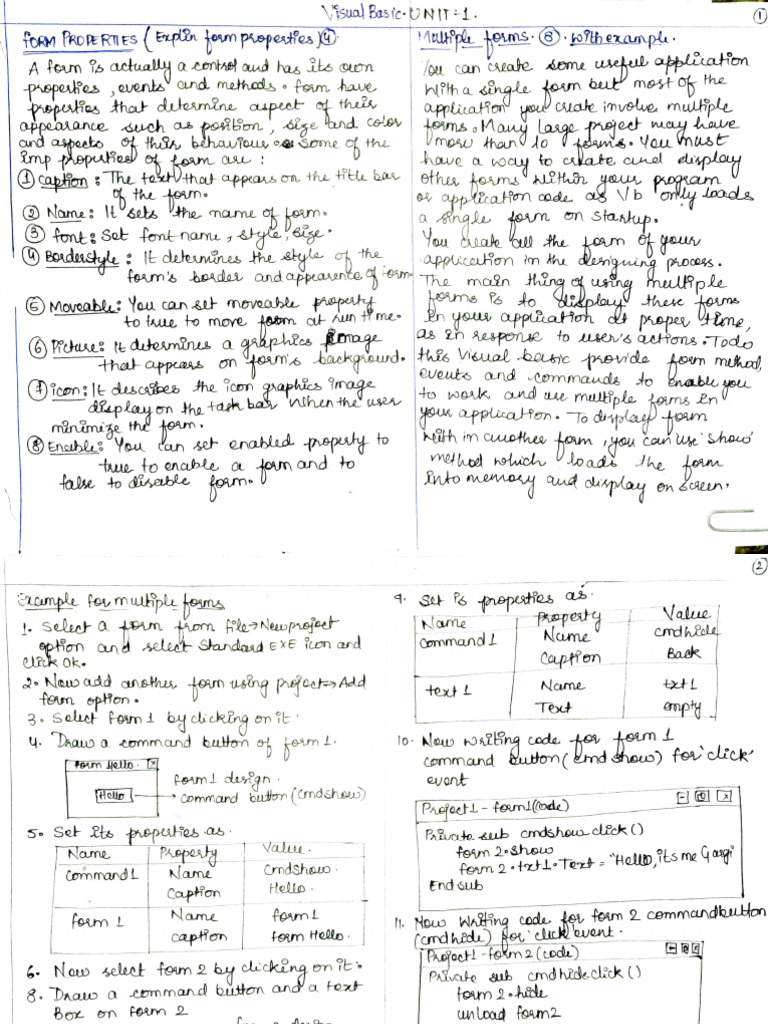 Visual Basic. UNIT-1.
1
FORM PROPERTIES (Explin form properties) 4
A form is actually a control and has its own
properties, events and methods. form have
properties that determine aspect of their
appearance such as position, size and color
and aspects of their behaviour. Some of the
imp properties of form are:
1 Caption: The text that appears on the title bar
of the form.
2 Name: It sets the name of form.
3 font: Set font name, style, size.
4 Borderstyle: It determines the style of the
form's border and appearence of form
5 Moveable: You can set moveable property
to true to move form at run time.
6 Picture: It determines a graphics image
that appears on form's background.
7 icon: It describes the icon graphics image
display on the task bar when the user
minimize the form.
8 Enable: You can set enabled property to
true to enable a form and to
false to disable form.
Multiple forms. 8. with example.
You can create some useful application
with a single form but most of the
application you create involve multiple
forms. Many large project may have
more than 10 forms. You must
have a way to create and display
other forms within your program
or application code as Vb only loads
a single form on startup.
You create all the form of your
application in the designing process.
The main thing of using multiple
forms is to display these forms
in your application at proper time,
as in response to user's actions. To do
this Visual basic provide form method,
events and commands to enable you
to work and use multiple forms in
your application. To display form
with in another form, you can use 'show'
method which loads the form
into memory and display on screen.
2
Example for multiple forms
1. Select a form from file→New project
option and select Standard EXE icon and
click OK.
2. Now add another form using project→Add
form option.
3. Select form 1 by clicking on it.
4. Draw a command button of form 1.
Form Hello. x
form 1 design.
Hello → command button (cmdshow)
5. Set its properties as.
Name Property Value.
Command1 Name cmdshow.
Caption Hello.
form 1 Name form1
caption form Hello.
6. Now select form 2 by clicking on it.
8. Draw a command button and a text
Box on form 2
9. Set is properties as.
Name Property Value
Command1 Name cmdhide
Caption Back
text 1 Name txt1
Text empty
10. Now writing code for form 1
command button (cmd show) for 'click'
event
Project1 - form1 (code)
Private sub cmdshow click ()
form 2. show
form 2. txt1. Text = "Hello, its me Gargi
End sub
11. Now writing code for form 2 commandbutton
(cmdhide) for click event.
Project1 - form 2 (code)
Private sub cmdhide click ()
form 2. hide
unload form2